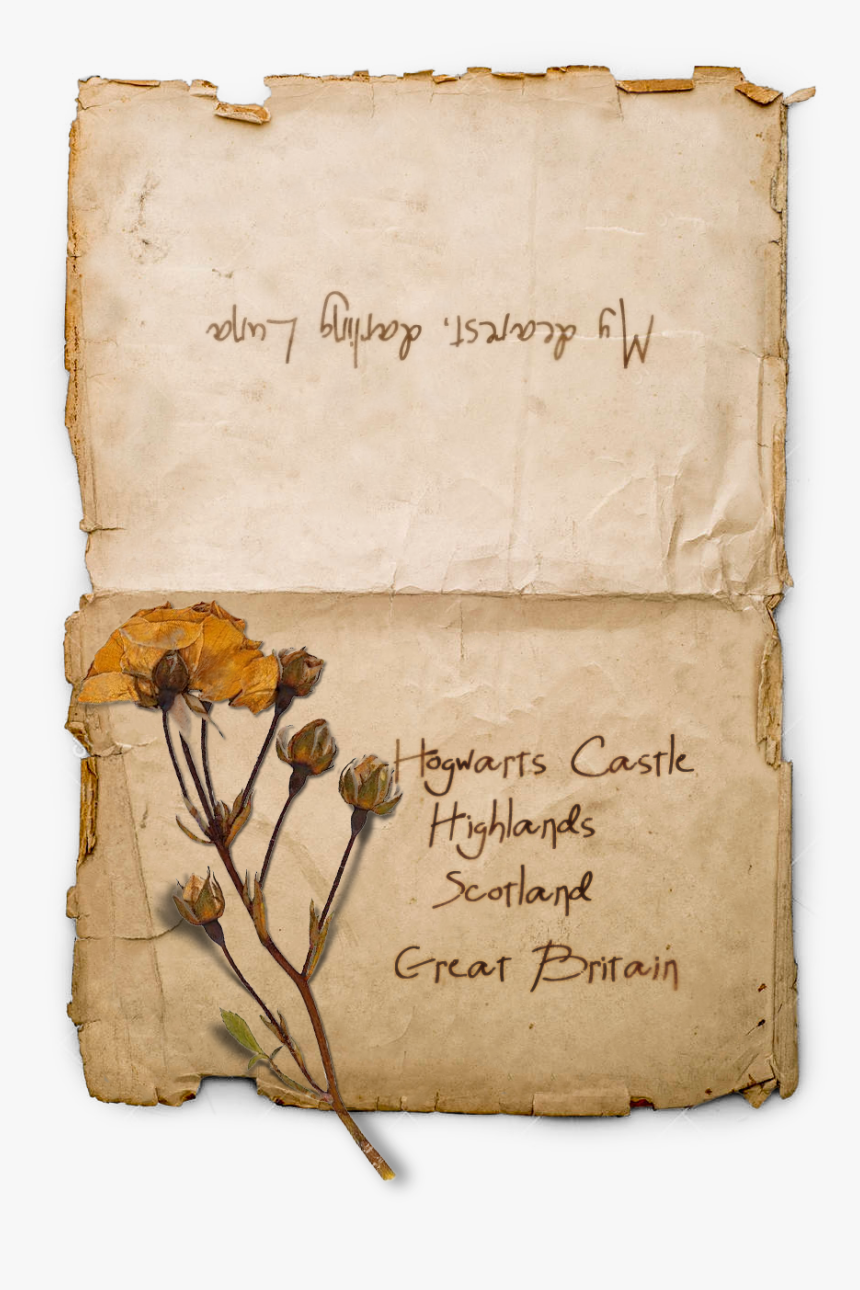 My dearest, darling Luna
Hogwarts Castle
Highlands
Scotland
Great Britain